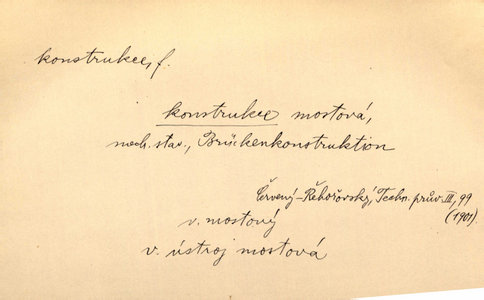 konstrukce, f.
konstrukce mostová,
mech. stav., Brückenkonstruktion
Červený-Řehořovský, Techn. prův. III, 99
(1901).
v. mostový
v. ústroj mostová